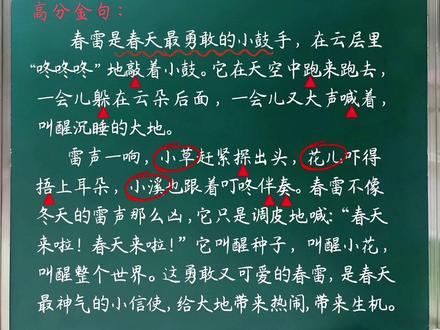 高分金句：
春雷是春天最勇敢的小鼓手，在云层里
“咚咚咚”地敲着小鼓。它在天空中跑来跑去，
一会儿躲在云朵后面，一会儿又大声喊着，
叫醒沉睡的大地。
雷声一响，小草赶紧探出头，花儿吓得
捂上耳朵，小溪也跟着叮咚伴奏。春雷不像
冬天的雷声那么凶，它只是调皮地喊：“春天
来啦！春天来啦！”它叫醒种子，叫醒小花，
叫醒整个世界。这勇敢又可爱的春雷，是春天
最神气的小信使，给大地带来热闹，带来生机。